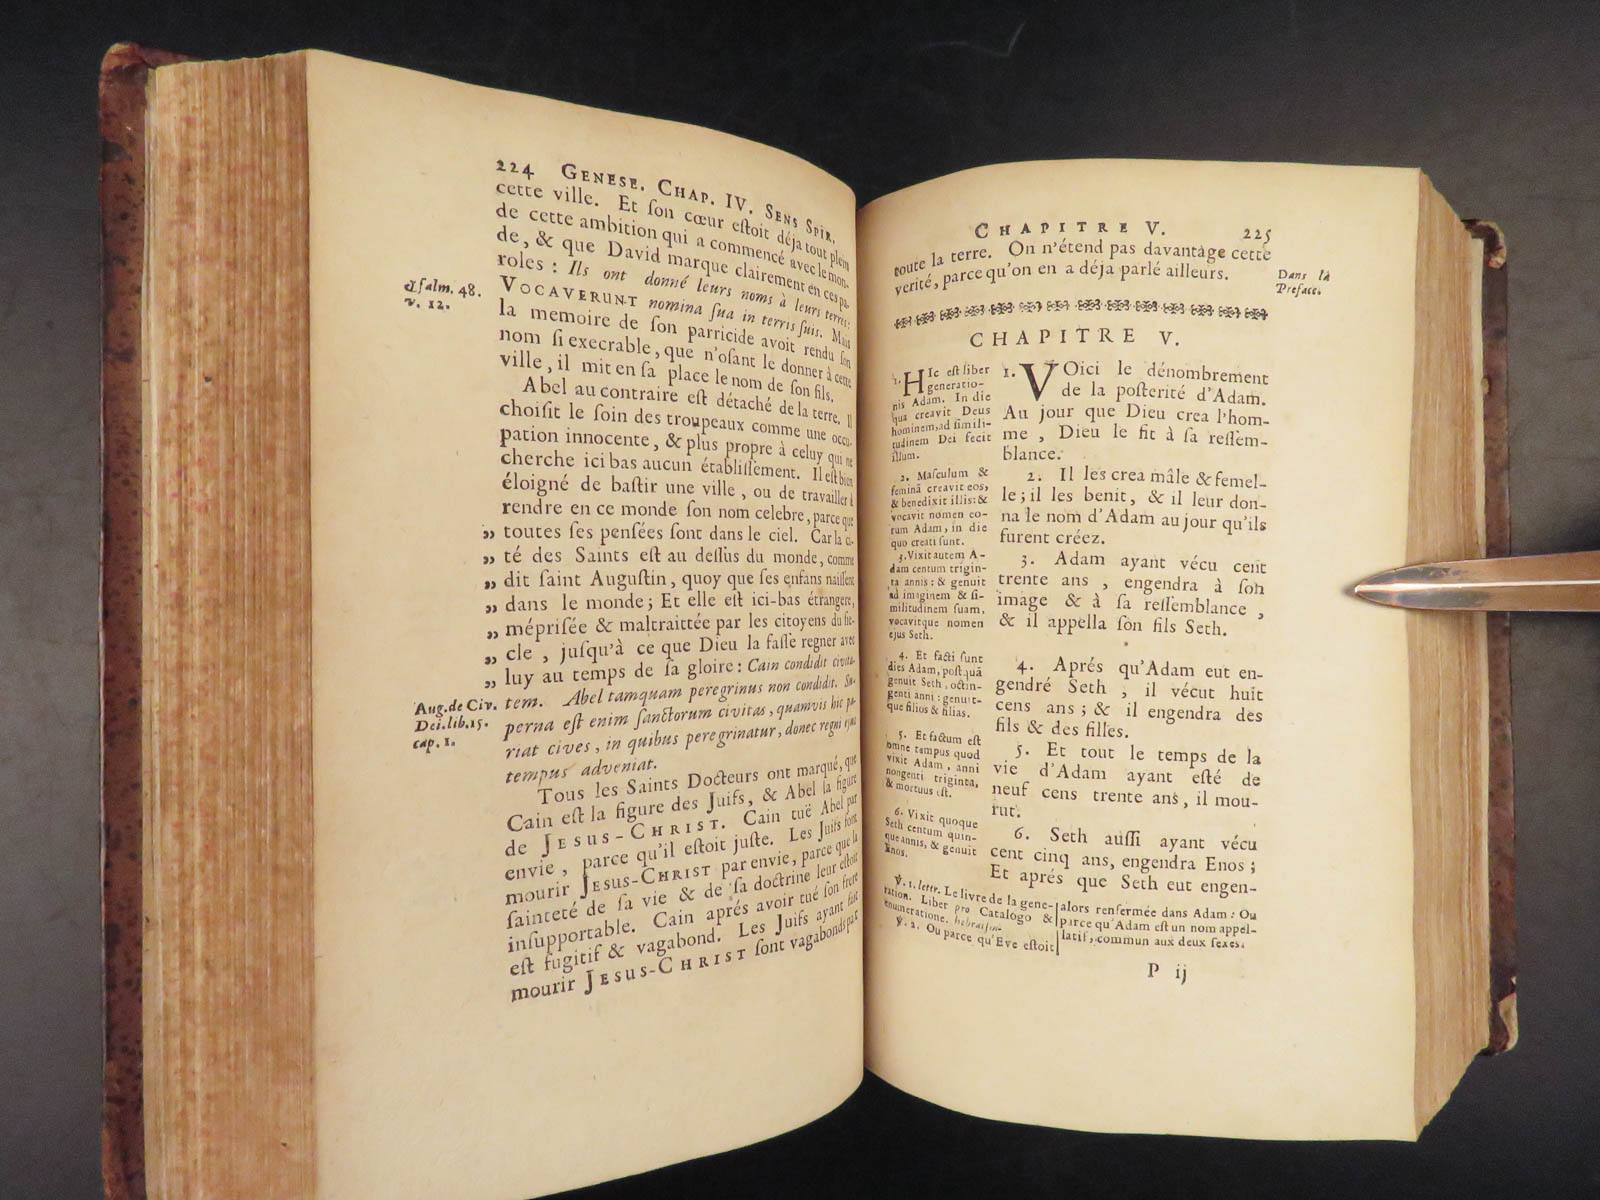 224 GENESE. CHAP. IV. SENS SPIR.
cette ville. Et ſon cœur eſtoit déja tout plein
de cette ambition qui a commencé avec le mon-
de, & que David marque clairement en ces pa-
roles : Ils ont donné leurs noms à leurs terres:
VOCAVERUNT nomina ſua in terris ſuis. Mais
la memoire de ſon parricide avoit rendu ſon
nom ſi execrable, que n'oſant le donner à cette
ville, il mit en ſa place le nom de ſon fils.
Abel au contraire eſt détaché de la terre. Il
choiſit le ſoin des troupeaux comme une occu-
pation innocente, & plus propre à celuy qui ne
cherche ici bas aucun établiſſement. Il eſt bien
éloigné de baſtir une ville, ou de travailler à
rendre en ce monde ſon nom celebre, parce que
„ toutes ſes penſées ſont dans le ciel. Car la ci-
„ té des Saints eſt au deſſus du monde, comme
„ dit ſaint Auguſtin, quoy que ſes enfans naiſſent
„ dans le monde; Et elle eſt ici-bas étrangere,
„ mépriſée & maltraittée par les citoyens du ſie-
„ cle, juſqu'à ce que Dieu la faſſe regner avec
„ luy au temps de ſa gloire : Cain condidit civita-
tem. Abel tamquam peregrinus non condidit. Su-
perna eſt enim ſanctorum civitas, quamvis hic pa-
riat cives, in quibus peregrinatur, donec regni ejus
tempus adveniat.
Tous les Saints Docteurs ont marqué, que
Cain eſt la figure des Juifs, & Abel la figure
de JESUS-CHRIST. Cain tuë Abel par
envie, parce qu'il eſtoit juſte. Les Juifs font
mourir JESUS-CHRIST par envie, parce que la
ſainteté de ſa vie & de ſa doctrine leur eſtoit
inſupportable. Cain aprés avoir tué ſon frere
eſt fugitif & vagabond. Les Juifs ayant fait
mourir JESUS-CHRIST ſont vagabonds par
Pſalm. 48.
v. 12.
Aug. de Civ.
Dei. lib. 15.
cap. 1.
CHAPITRE V. 225
toute la terre. On n'étend pas davantage cette
verité, parce qu'on en a déja parlé ailleurs.
Dans la
Preface.
CHAPITRE V.
1. HIc eſt liber
generatio-
nis Adam. In die
qua creavit Deus
hominem, ad ſimili-
tudinem Dei fecit
illum.
2. Maſculum &
feminã creavit eos,
& benedixit illis: &
vocavit nomen eo-
rum Adam, in die
quo creati ſunt.
3. Vixit autem A-
dam centum trigin-
ta annis : & genuit
ad imaginem & ſi-
militudinem ſuam,
vocavitque nomen
ejus Seth.
4. Et facti ſunt
dies Adam, poſtquã
genuit Seth, octin-
genti anni : genuit-
que filios & filias.
5. Et factum eſt
omne tempus quod
vixit Adam, anni
nongenti triginta,
& mortuus eſt.
6. Vixit quoque
Seth centum quin-
que annis, & genuit
Enos.
1. VOici le dénombrement
de la poſterité d'Adam.
Au jour que Dieu crea l'hom-
me, Dieu le fit à ſa reſſem-
blance.
2. Il les crea mâle & femel-
le; il les benit, & il leur don-
na le nom d'Adam au jour qu'ils
furent créez.
3. Adam ayant vécu cent
trente ans, engendra à ſon
image & à ſa reſſemblance,
& il appella ſon fils Seth.
4. Aprés qu'Adam eut en-
gendré Seth, il vécut huit
cens ans; & il engendra des
fils & des filles.
5. Et tout le temps de la
vie d'Adam ayant eſté de
neuf cens trente ans, il mou-
rut.
6. Seth auſſi ayant vécu
cent cinq ans, engendra Enos;
Et aprés que Seth eut engen-
℣. 1. lettr. Le livre de la gene-
ration. Liber pro Catalogo &
enumeratione. hebraiſm.
℣. 2. Ou parce qu'Eve eſtoit
alors renfermée dans Adam : Ou
parce qu'Adam eſt un nom appel-
latif, commun aux deux ſexes.
P ij